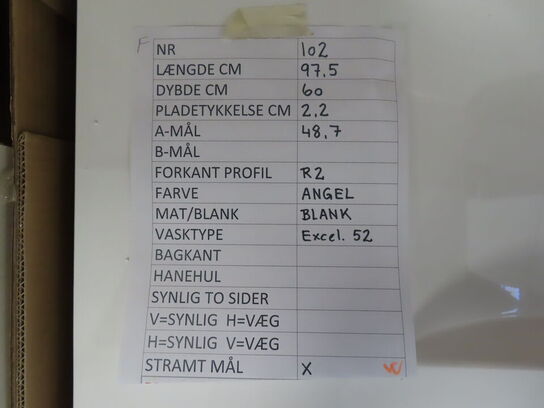 F
NR 102
LÆNGDE CM 97,5
DYBDE CM 60
PLADETYKKELSE CM 2,2
A-MÅL 48,7
B-MÅL
FORKANT PROFIL R2
FARVE ANGEL
MAT/BLANK BLANK
VASKTYPE Excel. 52
BAGKANT
HANEHUL
SYNLIG TO SIDER
V=SYNLIG H=VÆG
H=SYNLIG V=VÆG
STRAMT MÅL X